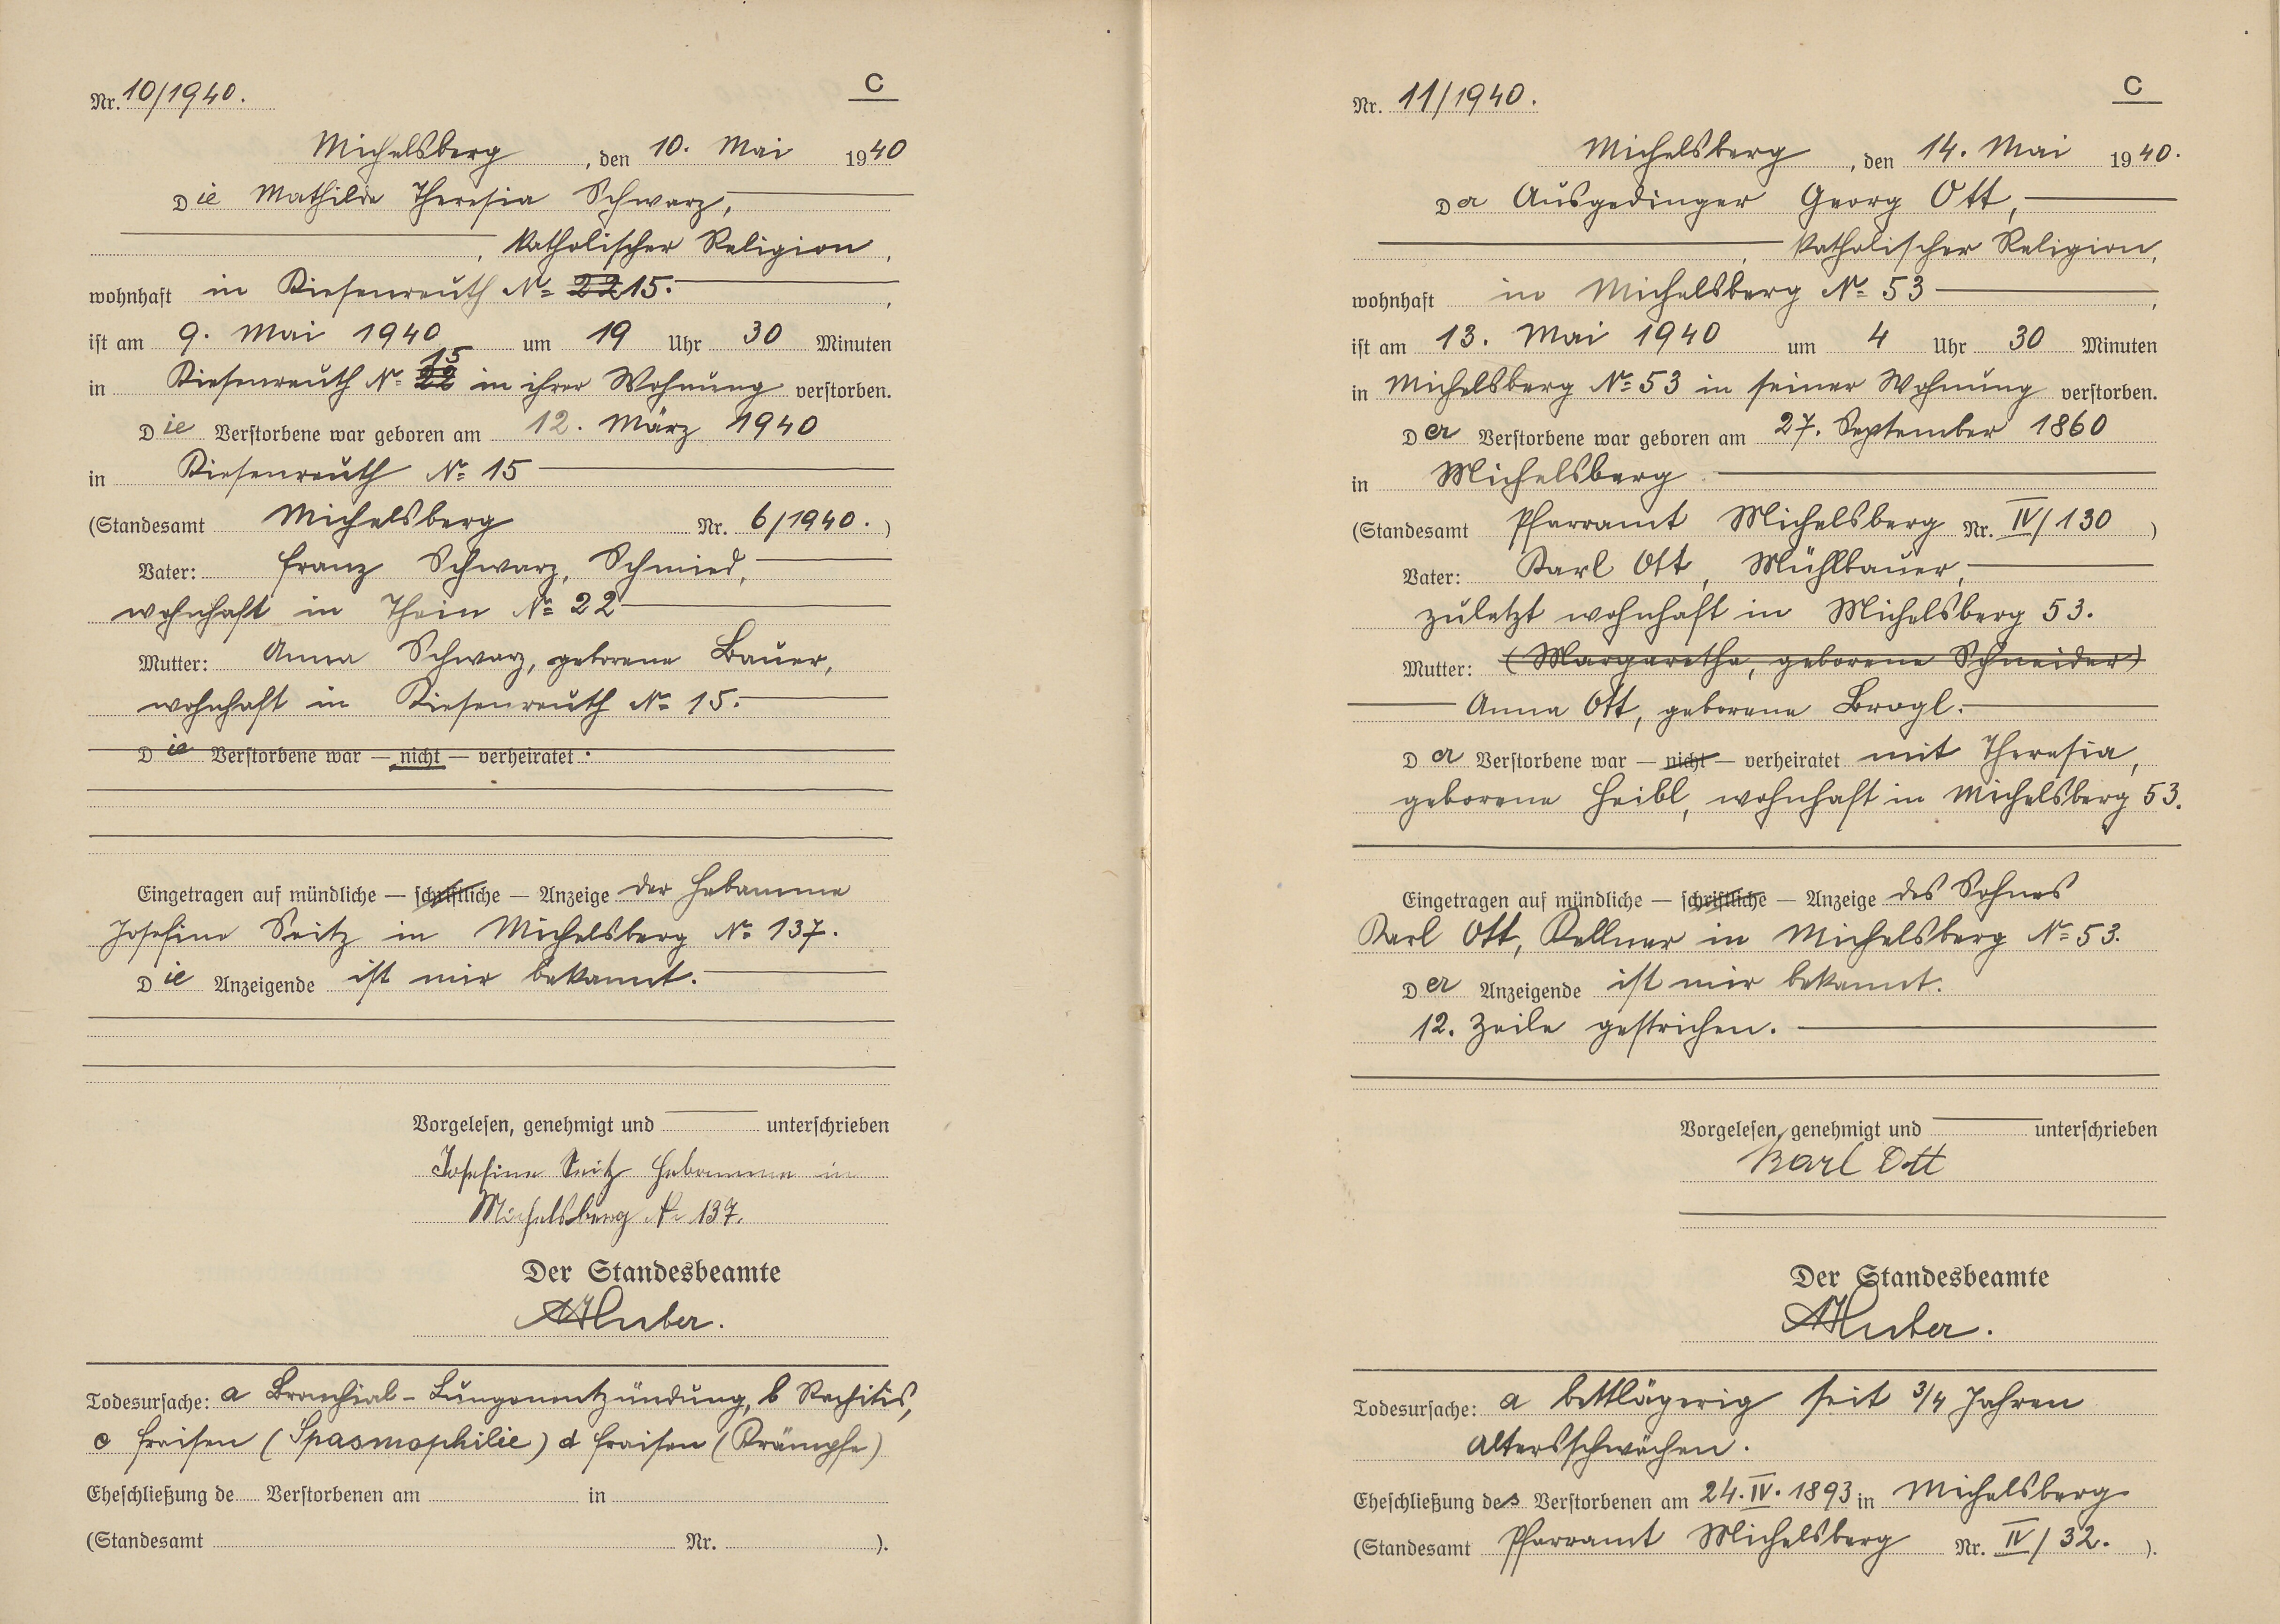 Nr. 10/1940.
C
Michelsberg, den 10. Mai 1940
Die Mathilde Theresia Schwarz,
, katholischer Religion,
wohnhaft in Kiesenreuth № 22 15.
ist am 9. Mai 1940 um 19 Uhr 30 Minuten
15
in Kiesenreuth № 22 in ihrer Wohnung verstorben.
Die Verstorbene war geboren am 12. März 1940
in Kiesenreuth № 15
(Standesamt Michelsberg Nr. 6/1940.)
Vater: Franz Schwarz, Schmied,
wohnhaft in Thein № 22
Mutter: Anna Schwarz, geborene Bauer,
wohnhaft in Kiesenreuth № 15.
Die Verstorbene war — nicht — verheiratet.
Eingetragen auf mündliche — schriftliche — Anzeige der Hebamme
Josefine Seitz in Michelsberg № 137.
Die Anzeigende ist mir bekannt.
Vorgelesen, genehmigt und unterschrieben
Josefine Seitz Hebamme in
Michelsberg № 137.
Der Standesbeamte
AHuber.
Todesursache: a Bronchial-Lungenentzündung, b Rachitis,
c Fraisen (Spasmophilie) d Fraisen (Krämpfe)
Eheschließung de Verstorbenen am in
(Standesamt Nr. ).
Nr. 11/1940.
C
Michelsberg, den 14. Mai 1940.
Der Ausgedinger Georg Ott,
, katholischer Religion,
wohnhaft in Michelsberg № 53,
ist am 13. Mai 1940 um 4 Uhr 30 Minuten
in Michelsberg № 53 in seiner Wohnung verstorben.
Der Verstorbene war geboren am 27. September 1860
in Michelsberg
(Standesamt Pfarramt Michelsberg Nr. IV/130)
Vater: Karl Ott, Mühlbauer,
zuletzt wohnhaft in Michelsberg 53.
Mutter: (Margaretha, geborene Schneider)
Anna Ott, geborene Brogl.
Der Verstorbene war — nicht — verheiratet mit Theresia,
geborene Heibl, wohnhaft in Michelsberg 53.
Eingetragen auf mündliche — schriftliche — Anzeige des Sohnes
Karl Ott, Kellner in Michelsberg № 53.
Der Anzeigende ist mir bekannt.
12. Zeile gestrichen.
Vorgelesen, genehmigt und unterschrieben
Karl Ott
Der Standesbeamte
AHuber.
Todesursache: a bettlägerig seit 3/4 Jahren
Altersschwächen.
Eheschließung des Verstorbenen am 24. IV. 1893 in Michelsberg
(Standesamt Pfarramt Michelsberg Nr. IV/32. ).